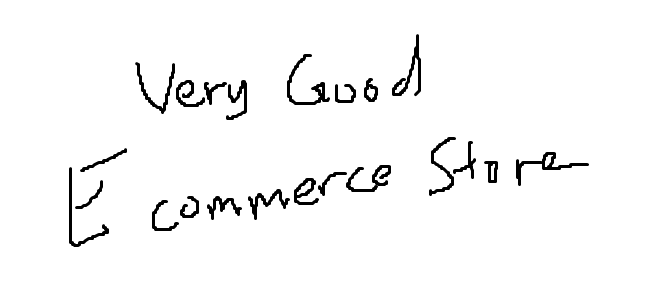 Very Good
E commerce Store